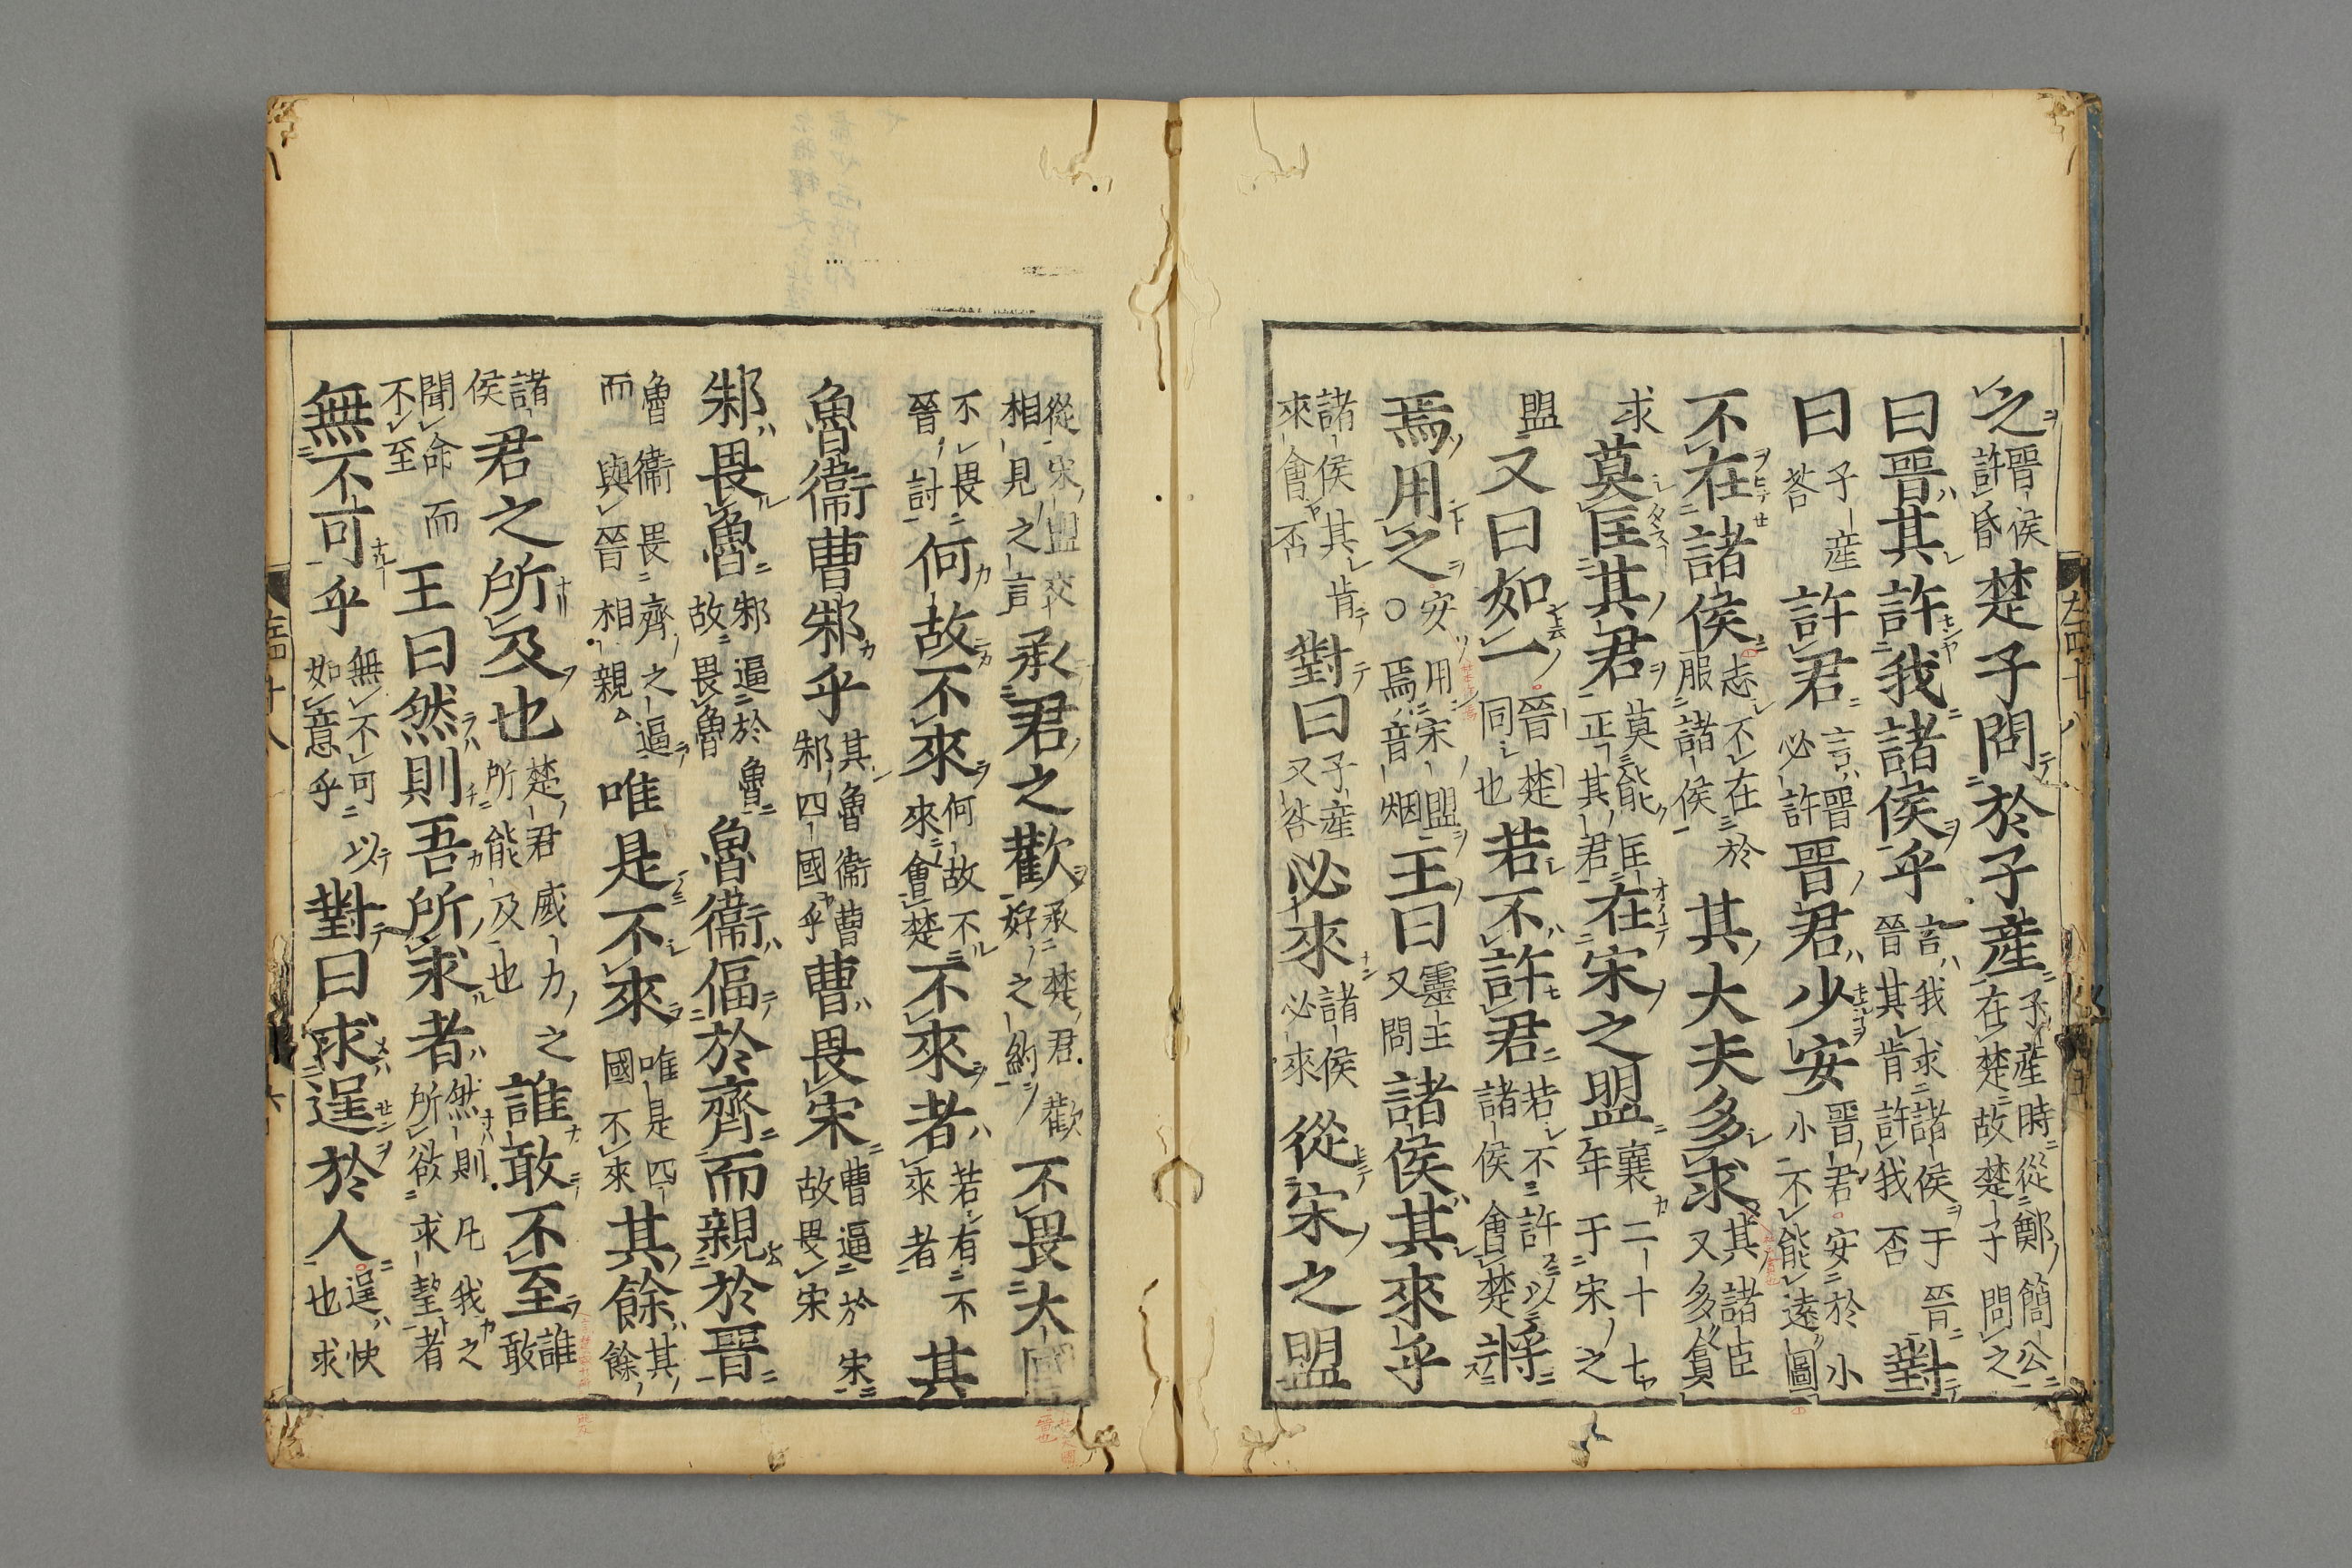 之晉侯許昏楚子問於子產子產時從鄭簡公在楚故楚子問之
曰晉其許我諸侯乎言我求諸侯于晉晉其肯許我否對
曰子產荅許君言晉必許晉君少安晉君安於小小不能遠圖
不在諸侯志不在於服諸侯其大夫多求其諸臣又多貪
求莫匡其君莫能匡正其君在宋之盟襄二十七年于宋之
盟又曰如一晉楚同也若不許君若不許以諸侯會楚將
焉用之安用宋盟○焉音烟王曰靈王又問諸侯其來乎
諸侯其肯來會否對曰子產又荅必來諸侯必來從宋之盟
從宋盟交相見之言承君之歡承楚君歡好之約不畏大國
不畏晉討何故不來何故不來會楚不來者若有不來者其
魯衞曹邾乎其魯衞曹邾四國乎曹畏宋曹逼於宋故畏宋
邾畏魯邾逼於魯故畏魯魯衞偪於齊而親於晉
魯衞畏齊之逼而與晉相親唯是不來唯是四國不來其餘其餘
諸侯君之所及也楚君威力之所能及也誰敢不至誰敢
聞命而不至王曰然則吾所求者然則凡我之所欲求者
無不可乎無不可以如意乎對曰求逞於人逞快也求